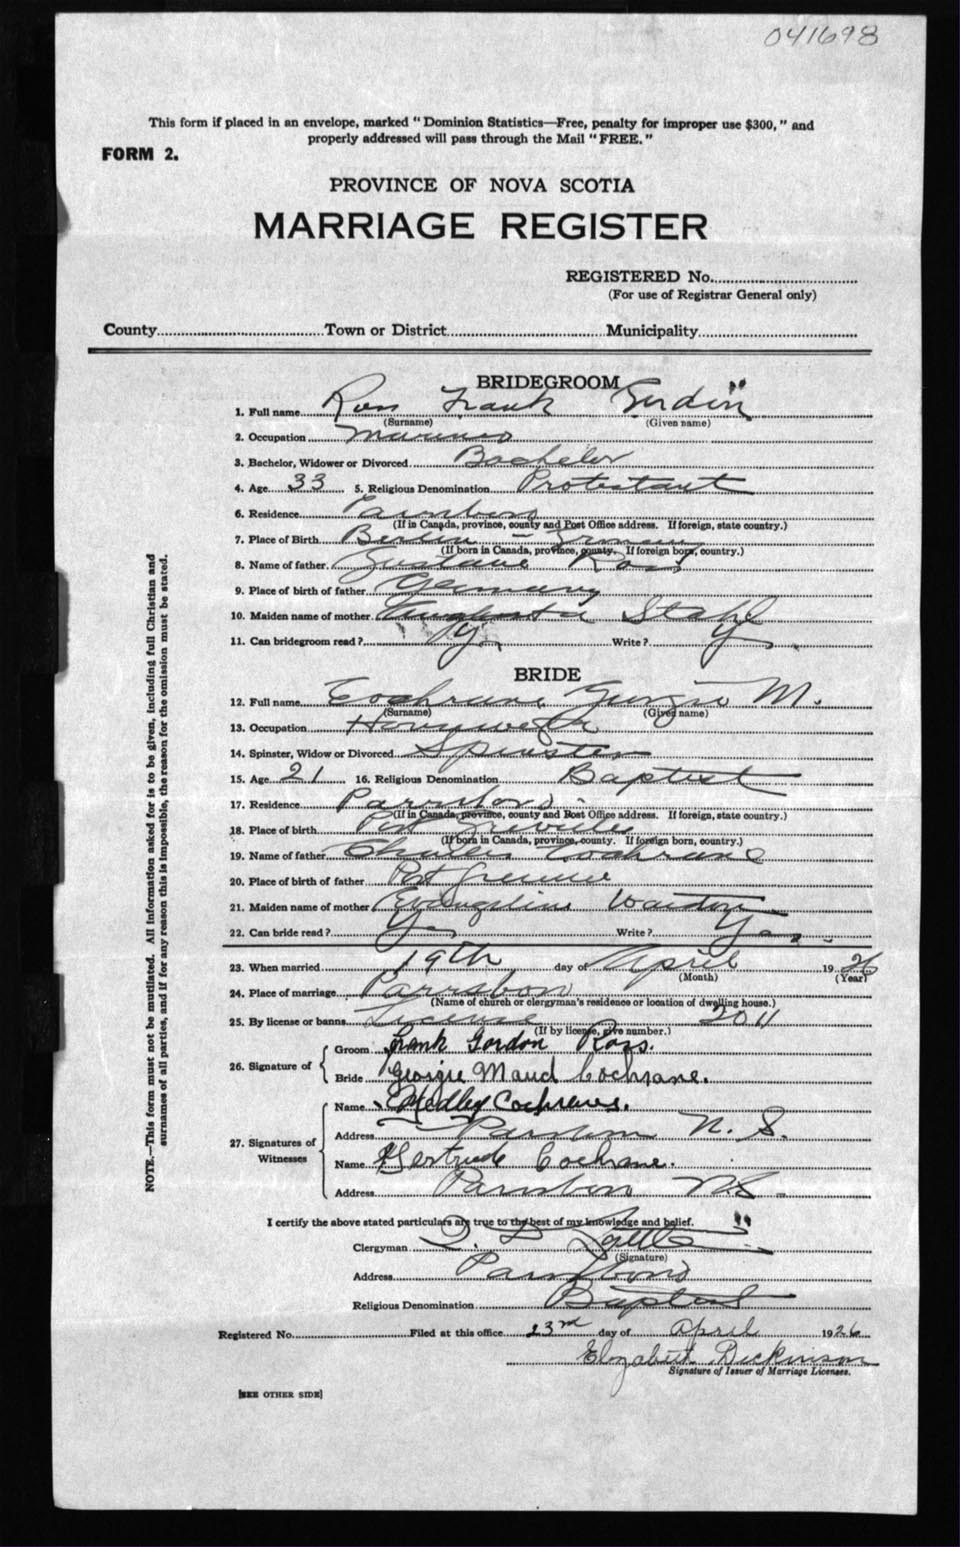 041698
This form if placed in an envelope, marked "Dominion Statistics—Free, penalty for improper use $300," and
properly addressed will pass through the Mail "FREE."
FORM 2.
PROVINCE OF NOVA SCOTIA
MARRIAGE REGISTER
REGISTERED No.
(For use of Registrar General only)
County Town or District Municipality
BRIDEGROOM
1. Full name Ross Frank Gordon
(Surname) (Given name)
2. Occupation Mariner
3. Bachelor, Widower or Divorced Bachelor
4. Age 33 5. Religious Denomination Protestant
6. Residence Parrsboro
(If in Canada, province, county and Post Office address. If foreign, state country.)
7. Place of Birth Berlin - Germany
(If born in Canada, province, county. If foreign born, country.)
8. Name of father Gustave Ross
9. Place of birth of father Germany
10. Maiden name of mother Augusta Stahl
11. Can bridegroom read? Y Write? Y
BRIDE
12. Full name Cochrane, Georgie M.
(Surname) (Given name)
13. Occupation
14. Spinster, Widow or Divorced Spinster
15. Age 21 16. Religious Denomination Baptist
17. Residence Parrsboro.
(If in Canada, province, county and Post Office address. If foreign, state country.)
18. Place of birth Port Greville
(If born in Canada, province, county. If foreign born, country.)
19. Name of father Charles Cochrane
20. Place of birth of father Port Greville
21. Maiden name of mother Evangeline
22. Can bride read? Yes Write? Yes.
23. When married 19th day of April 1926
(Month) (Year)
24. Place of marriage Parrsboro
(Name of church or clergyman's residence or location of dwelling house.)
25. By license or banns License 2011
(If by license, give number.)
26. Signature of
Groom Frank Gordon Ross.
Bride Georgie Maud Cochrane.
27. Signatures of Witnesses
Name Hedley Cochrane.
Address Parrsboro N. S.
Name Gertrude Cochrane.
Address Parrsboro N.S.
I certify the above stated particulars are true to the best of my knowledge and belief.
Clergyman
(Signature)
Address Parrsboro
Religious Denomination Baptist
Registered No. Filed at this office 23rd day of April 1926
Elizabeth Dickinson
Signature of Issuer of Marriage Licenses.
[SEE OTHER SIDE]
NOTE.—This form must not be mutilated. All information asked for is to be given, including full Christian and
surnames of all parties, and if for any reason this is impossible, the reason for the omission must be stated.